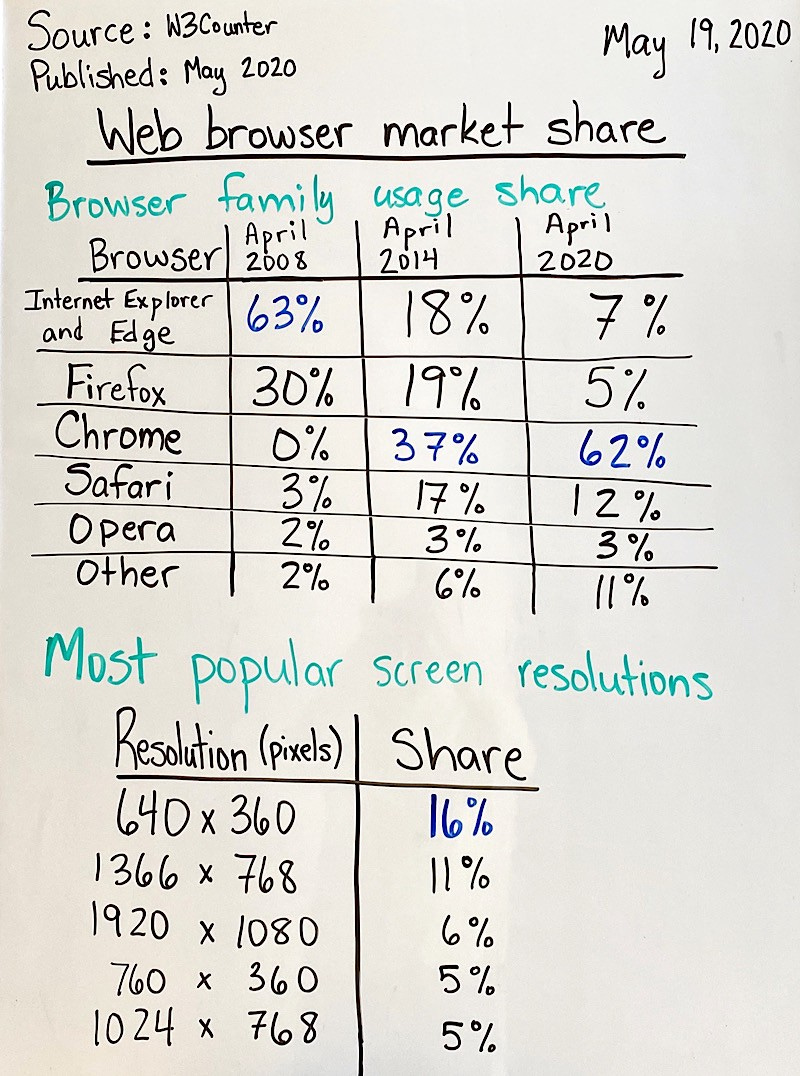 Source: W3Counter
May 19, 2020
Published: May 2020
Web browser market share
Browser family usage share
Browser April 2008 April 2014 April 2020
Internet Explorer and Edge 63% 18% 7%
Firefox 30% 19% 5%
Chrome 0% 37% 62%
Safari 3% 17% 12%
Opera 2% 3% 3%
Other 2% 6% 11%
Most popular screen resolutions
Resolution (pixels) Share
640 x 360 16%
1366 x 768 11%
1920 x 1080 6%
760 x 360 5%
1024 x 768 5%